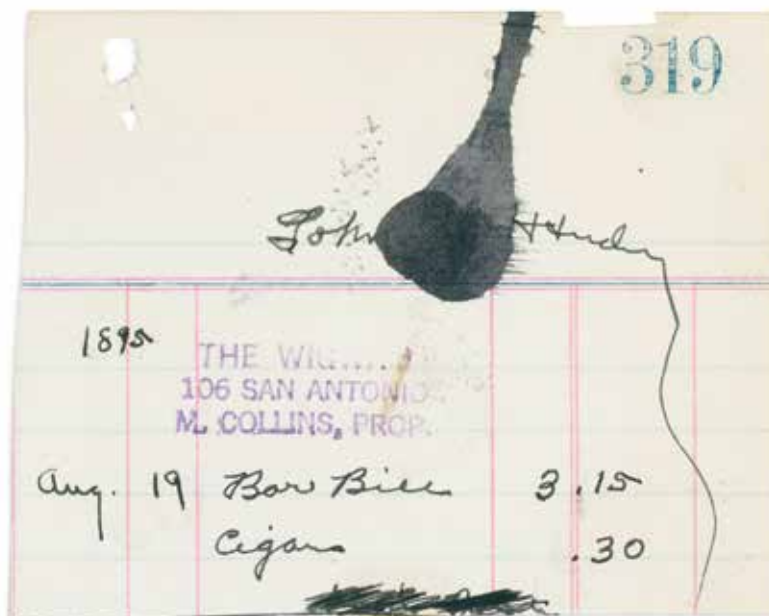 319
John
1895
THE
106 SAN ANTONIO
M. COLLINS, PROP.
Aug. 19 Bar Bill 3.15
Cigars .30